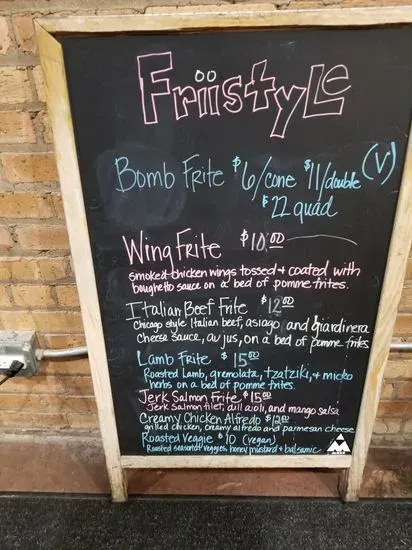 Friistyle
Bomb Frite $6/cone $11/double (V)
$22 quad
Wing Frite $10.00
smoked chicken wings tossed + coated with
boughetto sauce on a bed of pomme frites.
Italian Beef Frite $12.00
Chicago style Italian beef, asiago, and giardinera
cheese sauce, au jus, on a bed of pomme frites
Lamb Frite $15.00
Roasted Lamb, gremolata, tzatziki, + micro
herbs on a bed of pomme frites.
Jerk Salmon Frite $15.00
Jerk Salmon filet, dill aioli, and mango salsa
Creamy Chicken Alfredo $12.00
grilled chicken, creamy alfredo and parmesan cheese
Roasted Veggie $10 (vegan)
Roasted seasonal veggies, honey mustard + balsamic